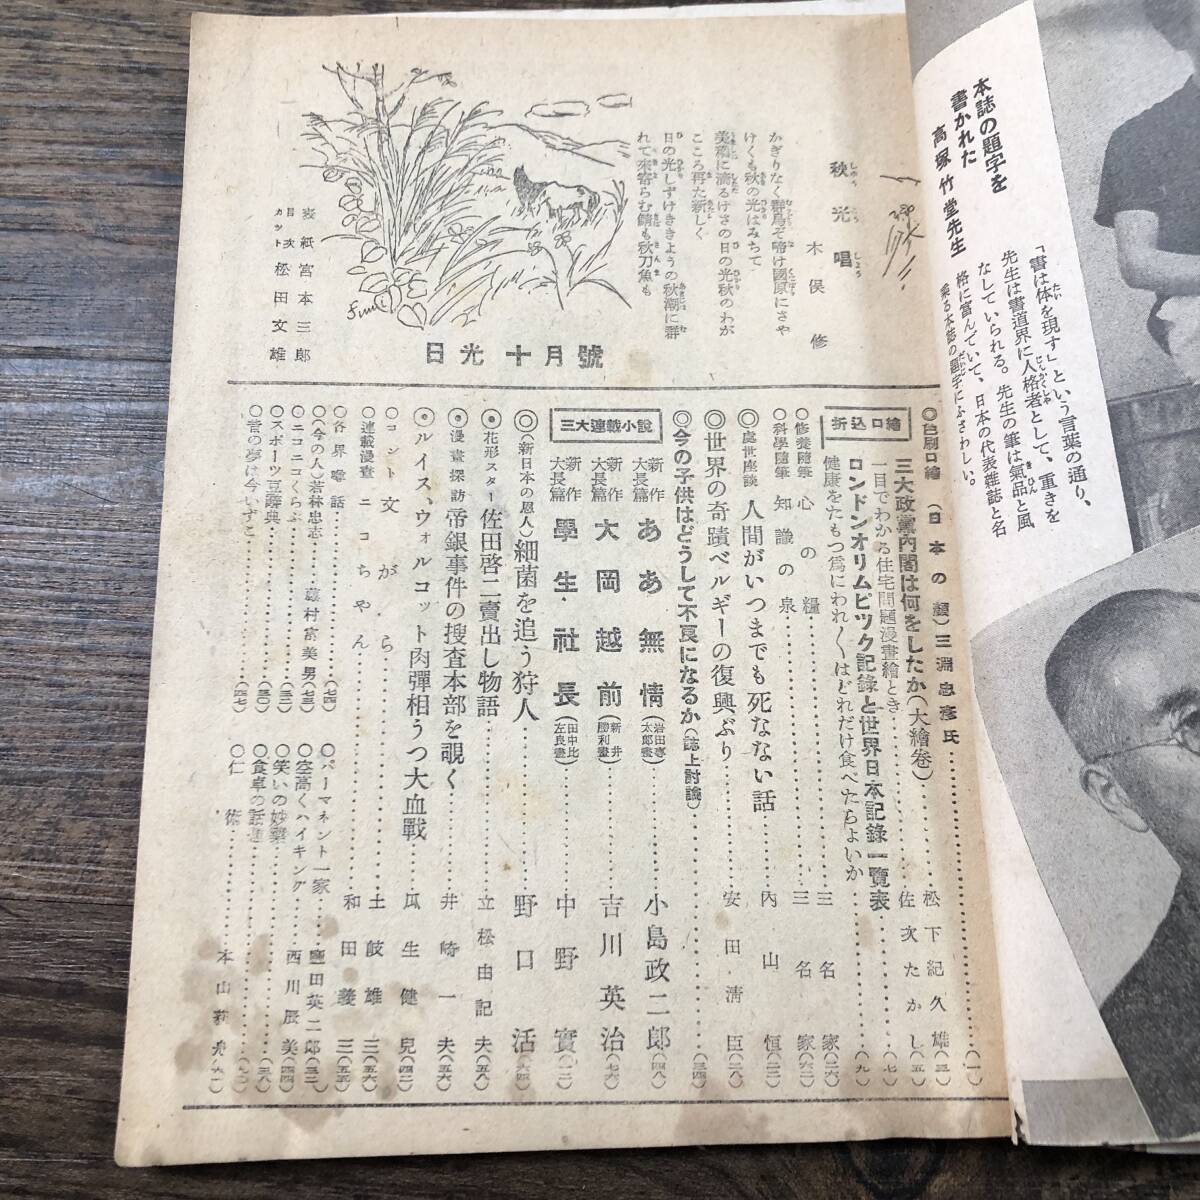 本誌の題字を
書かれた
高塚竹堂先生
「書は体を現す」という言葉の通り、
先生は書道界に人格者として、重きを
なしていられる。先生の筆は氣品と風
格に富んでいて、日本の代表雑誌と名
乘る本誌の題字にふさわしい。
秋光唱
木俣修
かぎりなく群鳥ぞ啼け國原にさや
けくも秋の光はみちて
美稲に滴るけさの日の光秋のわが
こころ再た新しく
日の光しずけききようの秋潮に群
れて來寄らむ鯖も秋刀魚も
表紙 宮本三郎
目次
カット 松田文雄
日光 十月號
◎色刷口繪(日本の顔)三淵忠彦氏……(一)
折込口繪
三大政黨内閣は何をしたか(大繪巻)……松下紀久雄(三)
一目でわかる住宅問題漫畫繪とき……佐次たかし(五)
ロンドンオリムピツク記錄と世界日本記錄一覽表……(七)
健康をたもつ爲にわれ〱はどれだけ食べたらよいか……(九)
◎修養隨筆 心の糧……三名家(二六)
◎科學隨筆 知識の泉……三名家(六二)
◎處世座談 人間がいつまでも死なない話……内山恒(二二)
◎世界の奇蹟ベルギーの復興ぶり……安田淸臣(二八)
◎今の子供はどうして不良になるか(誌上討論)……(三四)
三大連載小説
新作大長篇 ああ無情(岩田專太郎畫)……小島政二郎(四八)
新作大長篇 大岡越前(新井勝利畫)……吉川英治(七六)
新作大長篇 學生・社長(田中比左良畫)……中野實(一二)
◎(新日本の恩人)細菌を追う狩人……野口活(六四)
◎花形スター 佐田啓二賣出し物語……立松由記夫(五八)
◎漫畫探訪 帝銀事件の捜査本部を覗く……井崎一夫(五六)
◎ルイス、ウォルコット肉彈相うつ大血戰……瓜生健兒(四二)
◎コント 文がら……土岐雄三(五六)
◎連載漫畫 ニコちやん……和田義三(五五)
◎各界噂話……(七四)
◎(今の人)若林忠志……藤村富美男(七三)
◎ニコニコくらぶ……(三二)
◎スポーツ豆辭典……(三〇)
◎昔の夢は今いずこ……(四七)
◎パーマネント一家……鹽田英二郎(三二)
◎空高くハイキング……西川辰美(四四)
◎笑いの妙藥……(三八)
◎食卓の話題……
◎仁術……本山荻舟